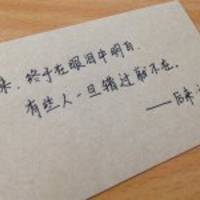 来,终于在眼泪中明白,
有些人一旦错过就不在。
——后来